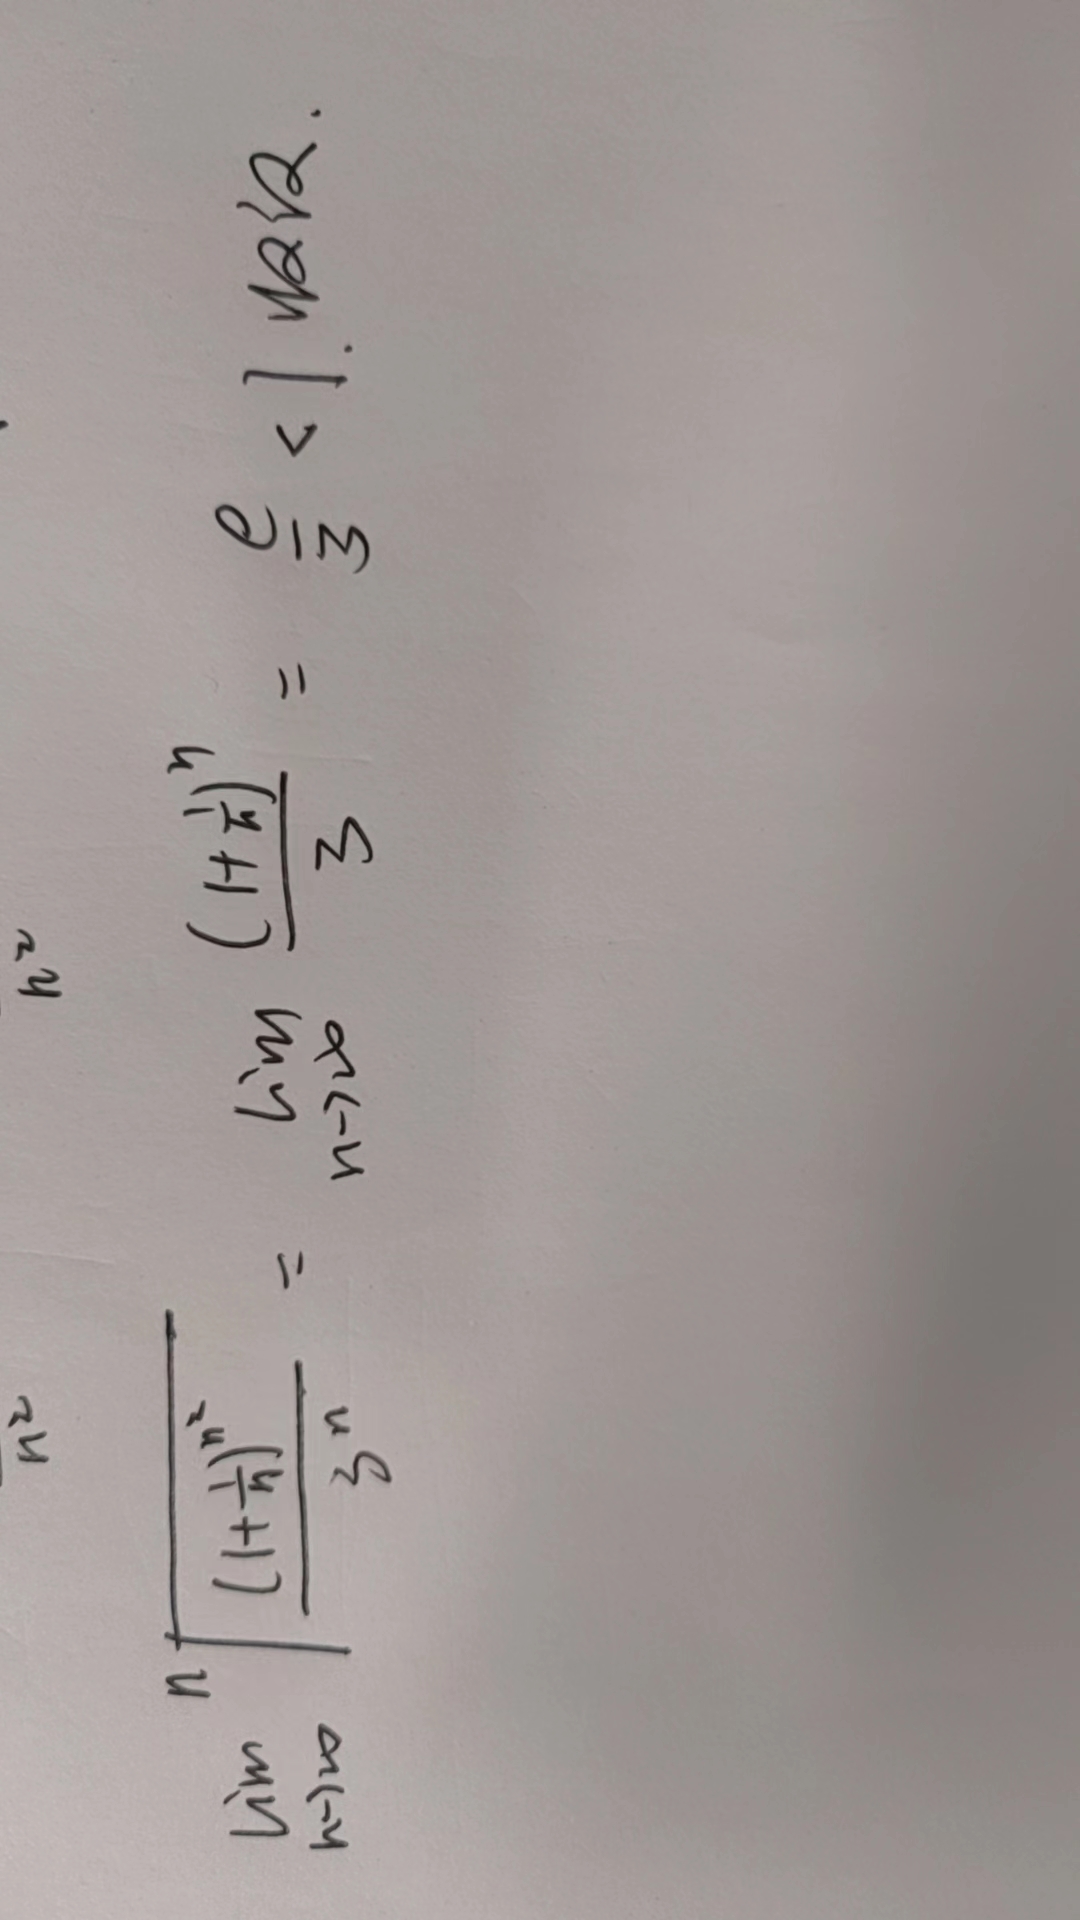 n² n²
lim n→∞ ⁿ√((1+1/n)^n² / 3^n) = lim n→∞ (1+1/n)^n / 3 = e/3 < 1. 收敛.